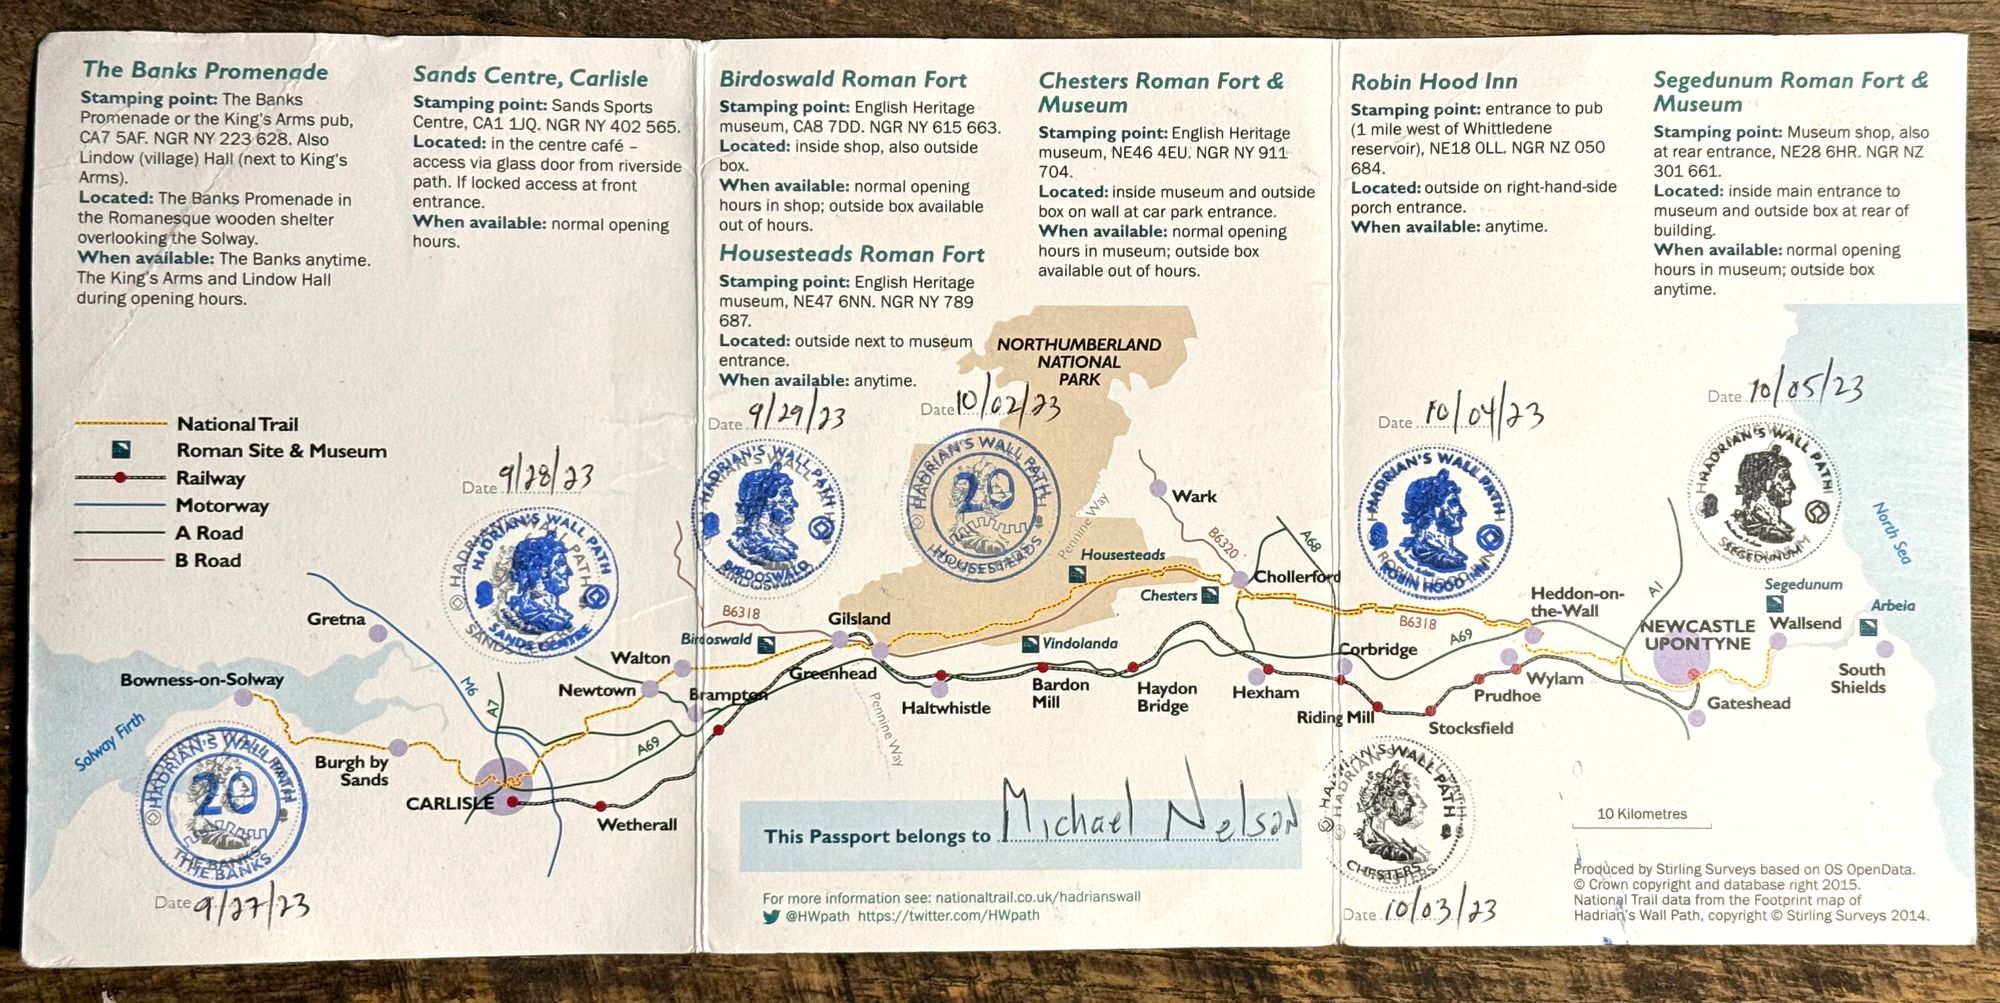 The Banks Promenade
Stamping point: The Banks
Promenade or the King's Arms pub,
CA7 5AF. NGR NY 223 628. Also
Lindow (village) Hall (next to King's
Arms).
Located: The Banks Promenade in
the Romanesque wooden shelter
overlooking the Solway.
When available: The Banks anytime.
The King's Arms and Lindow Hall
during opening hours.
Sands Centre, Carlisle
Stamping point: Sands Sports
Centre, CA1 1JQ. NGR NY 402 565.
Located: in the centre café –
access via glass door from riverside
path. If locked access at front
entrance.
When available: normal opening
hours.
Birdoswald Roman Fort
Stamping point: English Heritage
museum, CA8 7DD. NGR NY 615 663.
Located: inside shop, also outside
box.
When available: normal opening
hours in shop; outside box available
out of hours.
Housesteads Roman Fort
Stamping point: English Heritage
museum, NE47 6NN. NGR NY 789
687.
Located: outside next to museum
entrance.
When available: anytime.
Chesters Roman Fort &
Museum
Stamping point: English Heritage
museum, NE46 4EU. NGR NY 911
704.
Located: inside museum and outside
box on wall at car park entrance.
When available: normal opening
hours in museum; outside box
available out of hours.
Robin Hood Inn
Stamping point: entrance to pub
(1 mile west of Whittledene
reservoir), NE18 0LL. NGR NZ 050
684.
Located: outside on right-hand-side
porch entrance.
When available: anytime.
Segedunum Roman Fort &
Museum
Stamping point: Museum shop, also
at rear entrance, NE28 6HR. NGR NZ
301 661.
Located: inside main entrance to
museum and outside box at rear of
building.
When available: normal opening
hours in museum; outside box
anytime.
National Trail
Roman Site & Museum
Railway
Motorway
A Road
B Road
NORTHUMBERLAND
NATIONAL
PARK
Date 9/28/23
HADRIAN'S WALL PATH
SANDS CENTRE
Date 9/29/23
HADRIAN'S WALL PATH
BIRDOSWALD
Date 10/02/23
HADRIAN'S WALL PATH
20
HOUSESTEADS
Date 10/04/23
HADRIAN'S WALL PATH
ROBIN HOOD INN
Date 10/05/23
HADRIAN'S WALL PATH
SEGEDUNUM
Gretna
Bowness-on-Solway
Solway Firth
Burgh by
Sands
CARLISLE
Wetherall
M6
A7
A69
Newtown
Walton
Brampton
B6318
Birdoswald
Gilsland
Greenhead
Pennine Way
Haltwhistle
Vindolanda
Bardon
Mill
Haydon
Bridge
Pennine Way
Housesteads
Chesters
Wark
B6320
A68
Chollerford
Hexham
Corbridge
Riding Mill
Stocksfield
Prudhoe
Wylam
B6318
A69
Heddon-on-
the-Wall
A1
NEWCASTLE
UPON TYNE
Gateshead
Segedunum
Wallsend
Arbeia
South
Shields
North Sea
HADRIAN'S WALL PATH
20
THE BANKS
Date 9/27/23
This Passport belongs to Michael Nelson
For more information see: nationaltrail.co.uk/hadrianswall
@HWpath https://twitter.com/HWpath
HADRIAN'S WALL PATH
CHESTERS
Date 10/03/23
10 Kilometres
Produced by Stirling Surveys based on OS OpenData.
© Crown copyright and database right 2015.
National Trail data from the Footprint map of
Hadrian's Wall Path, copyright © Stirling Surveys 2014.